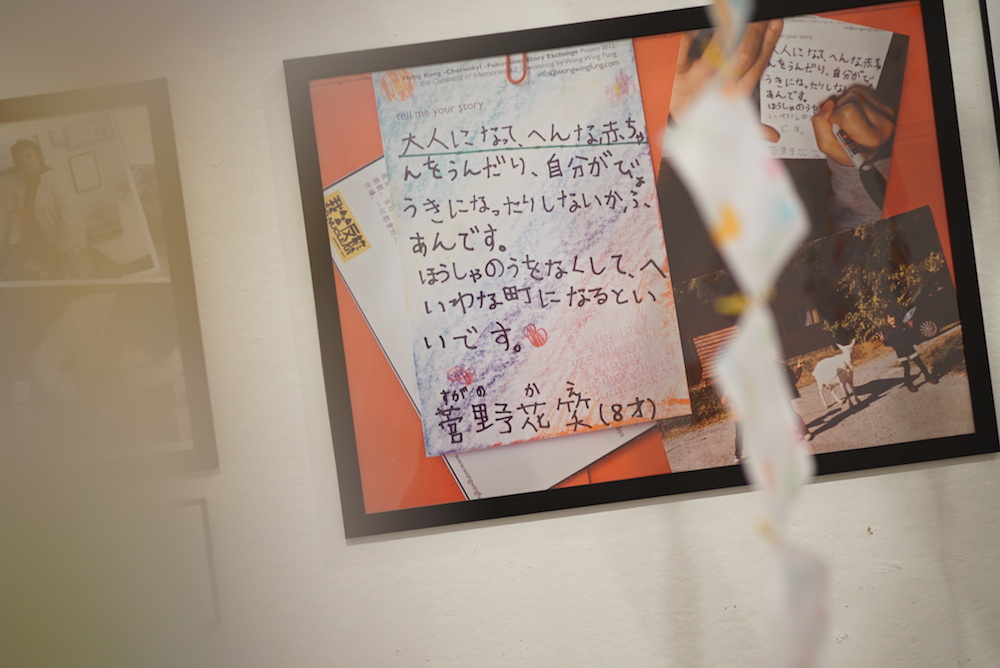 Hong Kong -Chernobyl -Fukushima Story Exchange Project 2012
the Cabinets of Memories by Wong Wing Fung
info@wongwingfung.com
tell me your story
大人になって、へんな赤ちゃ
んをうんだり、自分がびょ
うきになったりしないか、ふ
あんです。
ほうしゃのうをなくして、へ
いわな町になるとい
いです。
すがの か え
菅野花笑(8才)
your story
大人になって、へんな赤ち
んをうんだり、自分がび
うきになったりしない
あんです。
ほうしゃのうを
いわな
です。